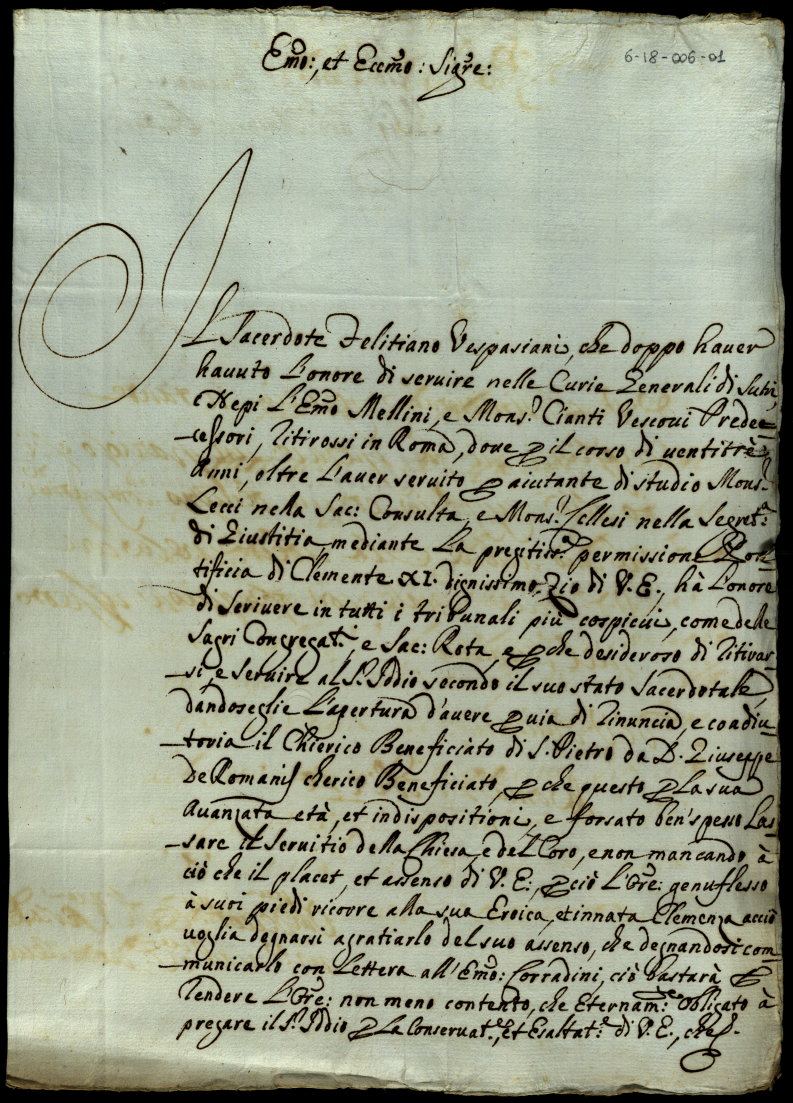 Emo:, et Eccmo: Sigre:
6-18-006-01
IL Sacerdote Felitiano Vespasiani, che doppo haver
havuto L'onore di servire nelle Curie Generali di Sutri,
e Nepi L'Emo Mellini, e Mons.r Cianti Vescovi Prede=
=cessori, ritirossi in Roma, dove p il corso di ventitrè
Anni, oltre L'aver servito p aiutante di studio Mons.r
Lecci nella Sac: Consulta, e Mons.r Cellesi nella Segret.a
di Giustitia, mediante La pregitiss.a permissione Pon=
tificia di Clemente XI. dignissimo Zio di V. E., hà L'onore
di scrivere in tutti i tribunali più cospicui, come delle
Sagri Congregat.i, e Sac: Rota, e p che desideroso di ritirar=
=si, e servire al S.r Iddio secondo il suo stato Sacerdotale,
dandosegli e L'apertura d'avere p via di rinuncia, e coadiu=
=toria il Chierico Beneficiato di S. Pietro da D. Giuseppe
De Romanis cherico Beneficiato, p che questo p La sua
Avanzata età, et indispositioni, e forsato ben spesso Las=
=sare il Servitio della Chiesa, e del Coro, e non mancando à
ciò che il placet, et assenso di V. E., p ciò L'Ore: genuflesso
à suoi piedi ricorre alla sua Eroica, et innata Clemenza acciò
voglia degnarsi agratiarlo del suo assenso, che degnandosi com=
=municarlo con Lettera all'Emo: Corradini, ciò bastarà p
rendere L'Ore: non meno contento, che Eternam.te obligato à
pregare il S.r Iddio p La Conservat.e, et Esaltat.e di V. E., che